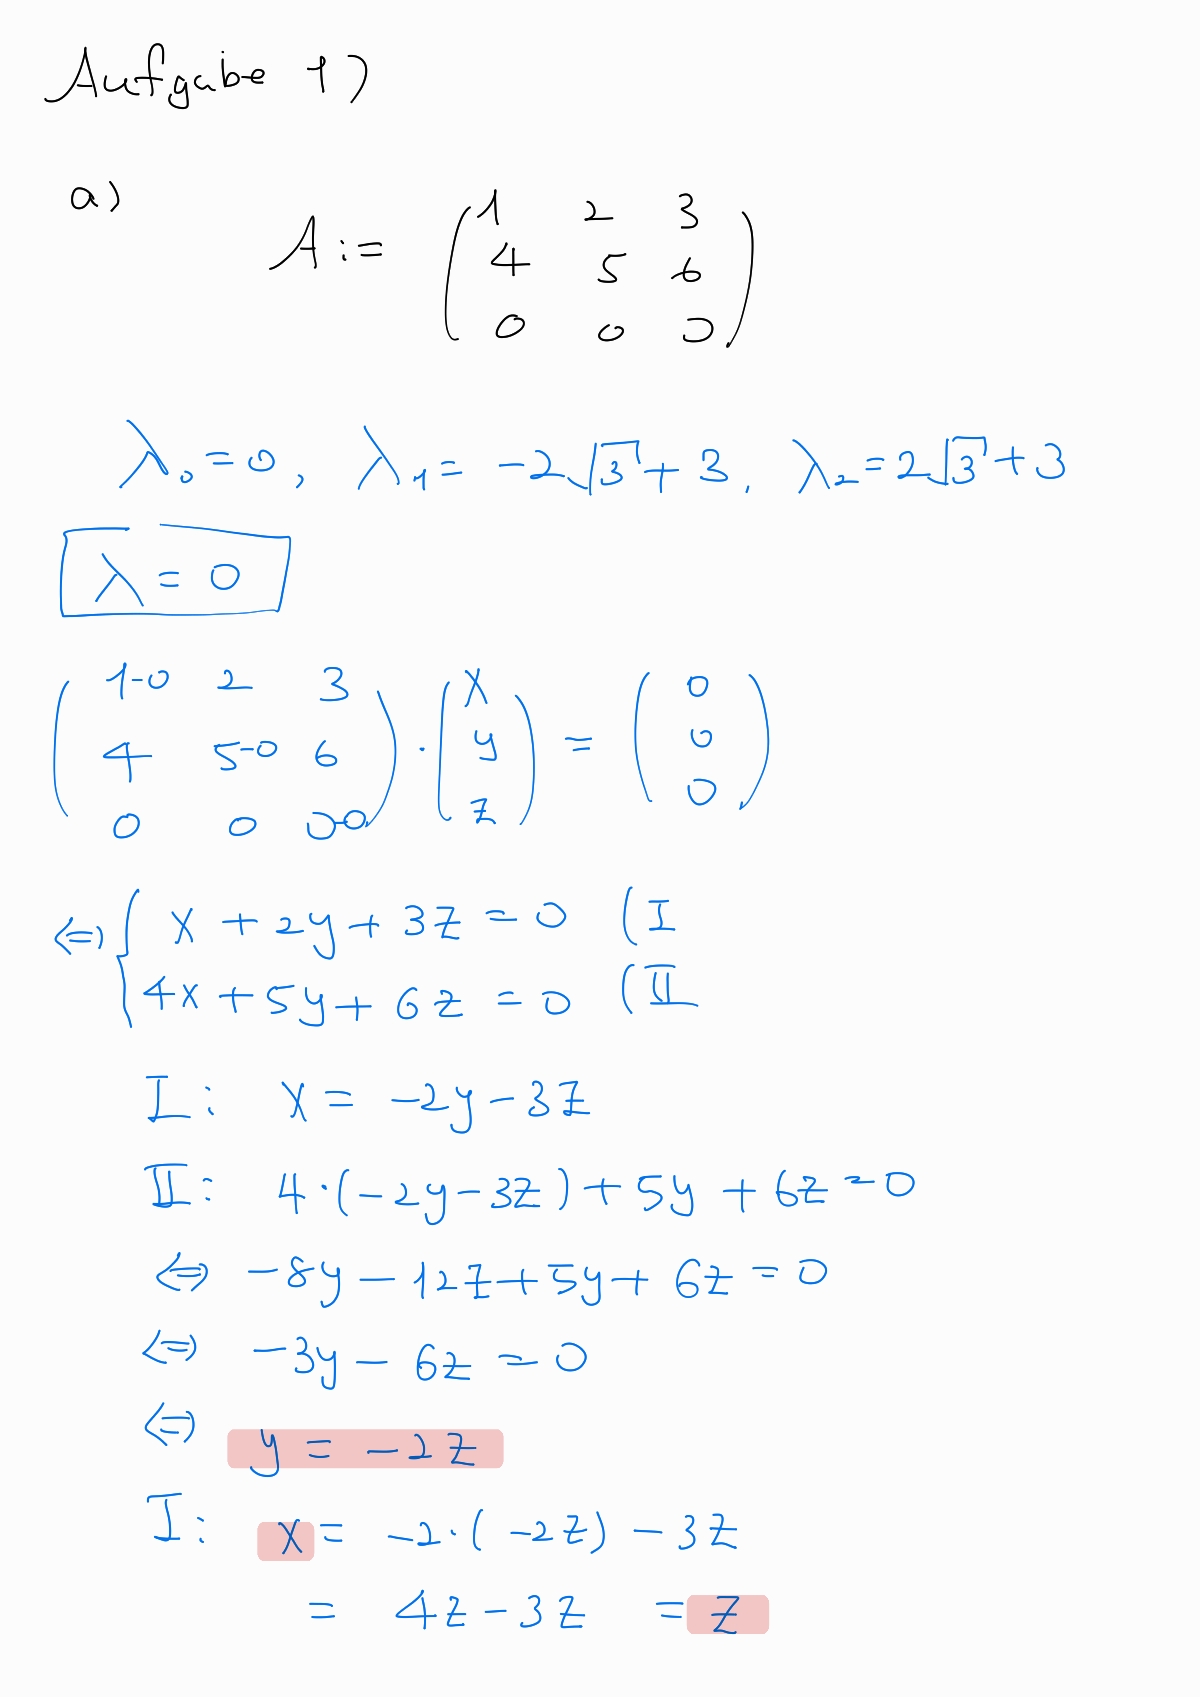 Aufgabe 1)
a)
A := ( 1 2 3
4 5 6
0 0 0 )
λ₀ = 0, λ₁ = -2√3 + 3, λ₂ = 2√3 + 3
λ = 0
( 1-0 2 3
4 5-0 6
0 0 0-0 ) · ( x
y
z ) = ( 0
0
0 )
⇔ { x + 2y + 3z = 0 (I
4x + 5y + 6z = 0 (II
I: x = -2y - 3z
II: 4·(-2y-3z) + 5y + 6z = 0
⇔ -8y - 12z + 5y + 6z = 0
⇔ -3y - 6z = 0
⇔ y = -2z
I: x = -2·(-2z) - 3z
= 4z - 3z = z